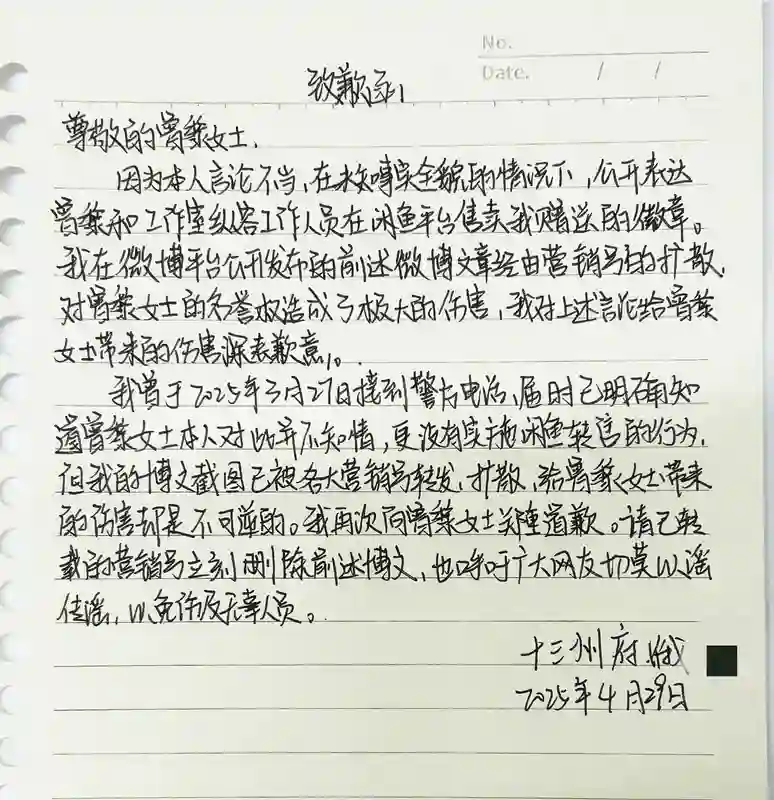 No.
Date. / /
致歉函
尊敬的曾黎女士.
因为本人言论不当,在未知事实全貌的情况下,公开表达
曾黎和工作室纵容工作人员在闲鱼平台售卖我赠送的徽章。
我在微博平台公开发布的前述微博文章经由营销号的扩散,
对曾黎女士的名誉权造成了极大的伤害,我对上述言论给曾黎
女士带来的伤害深表歉意。
我曾于2025年3月27日接到警方电话,届时已明确知
道曾黎女士本人对此并不知情,更没有实施闲鱼转售的行为,
但我的博文截图已被各大营销号转发,扩散,给曾黎女士带来
的伤害却是不可逆的。我再次向曾黎女士郑重道歉。请已转
载的营销号立刻删除前述博文,也呼吁广大网友切莫以谣
传谣,以免伤及无辜人员。
十三州府
2025年4月29日